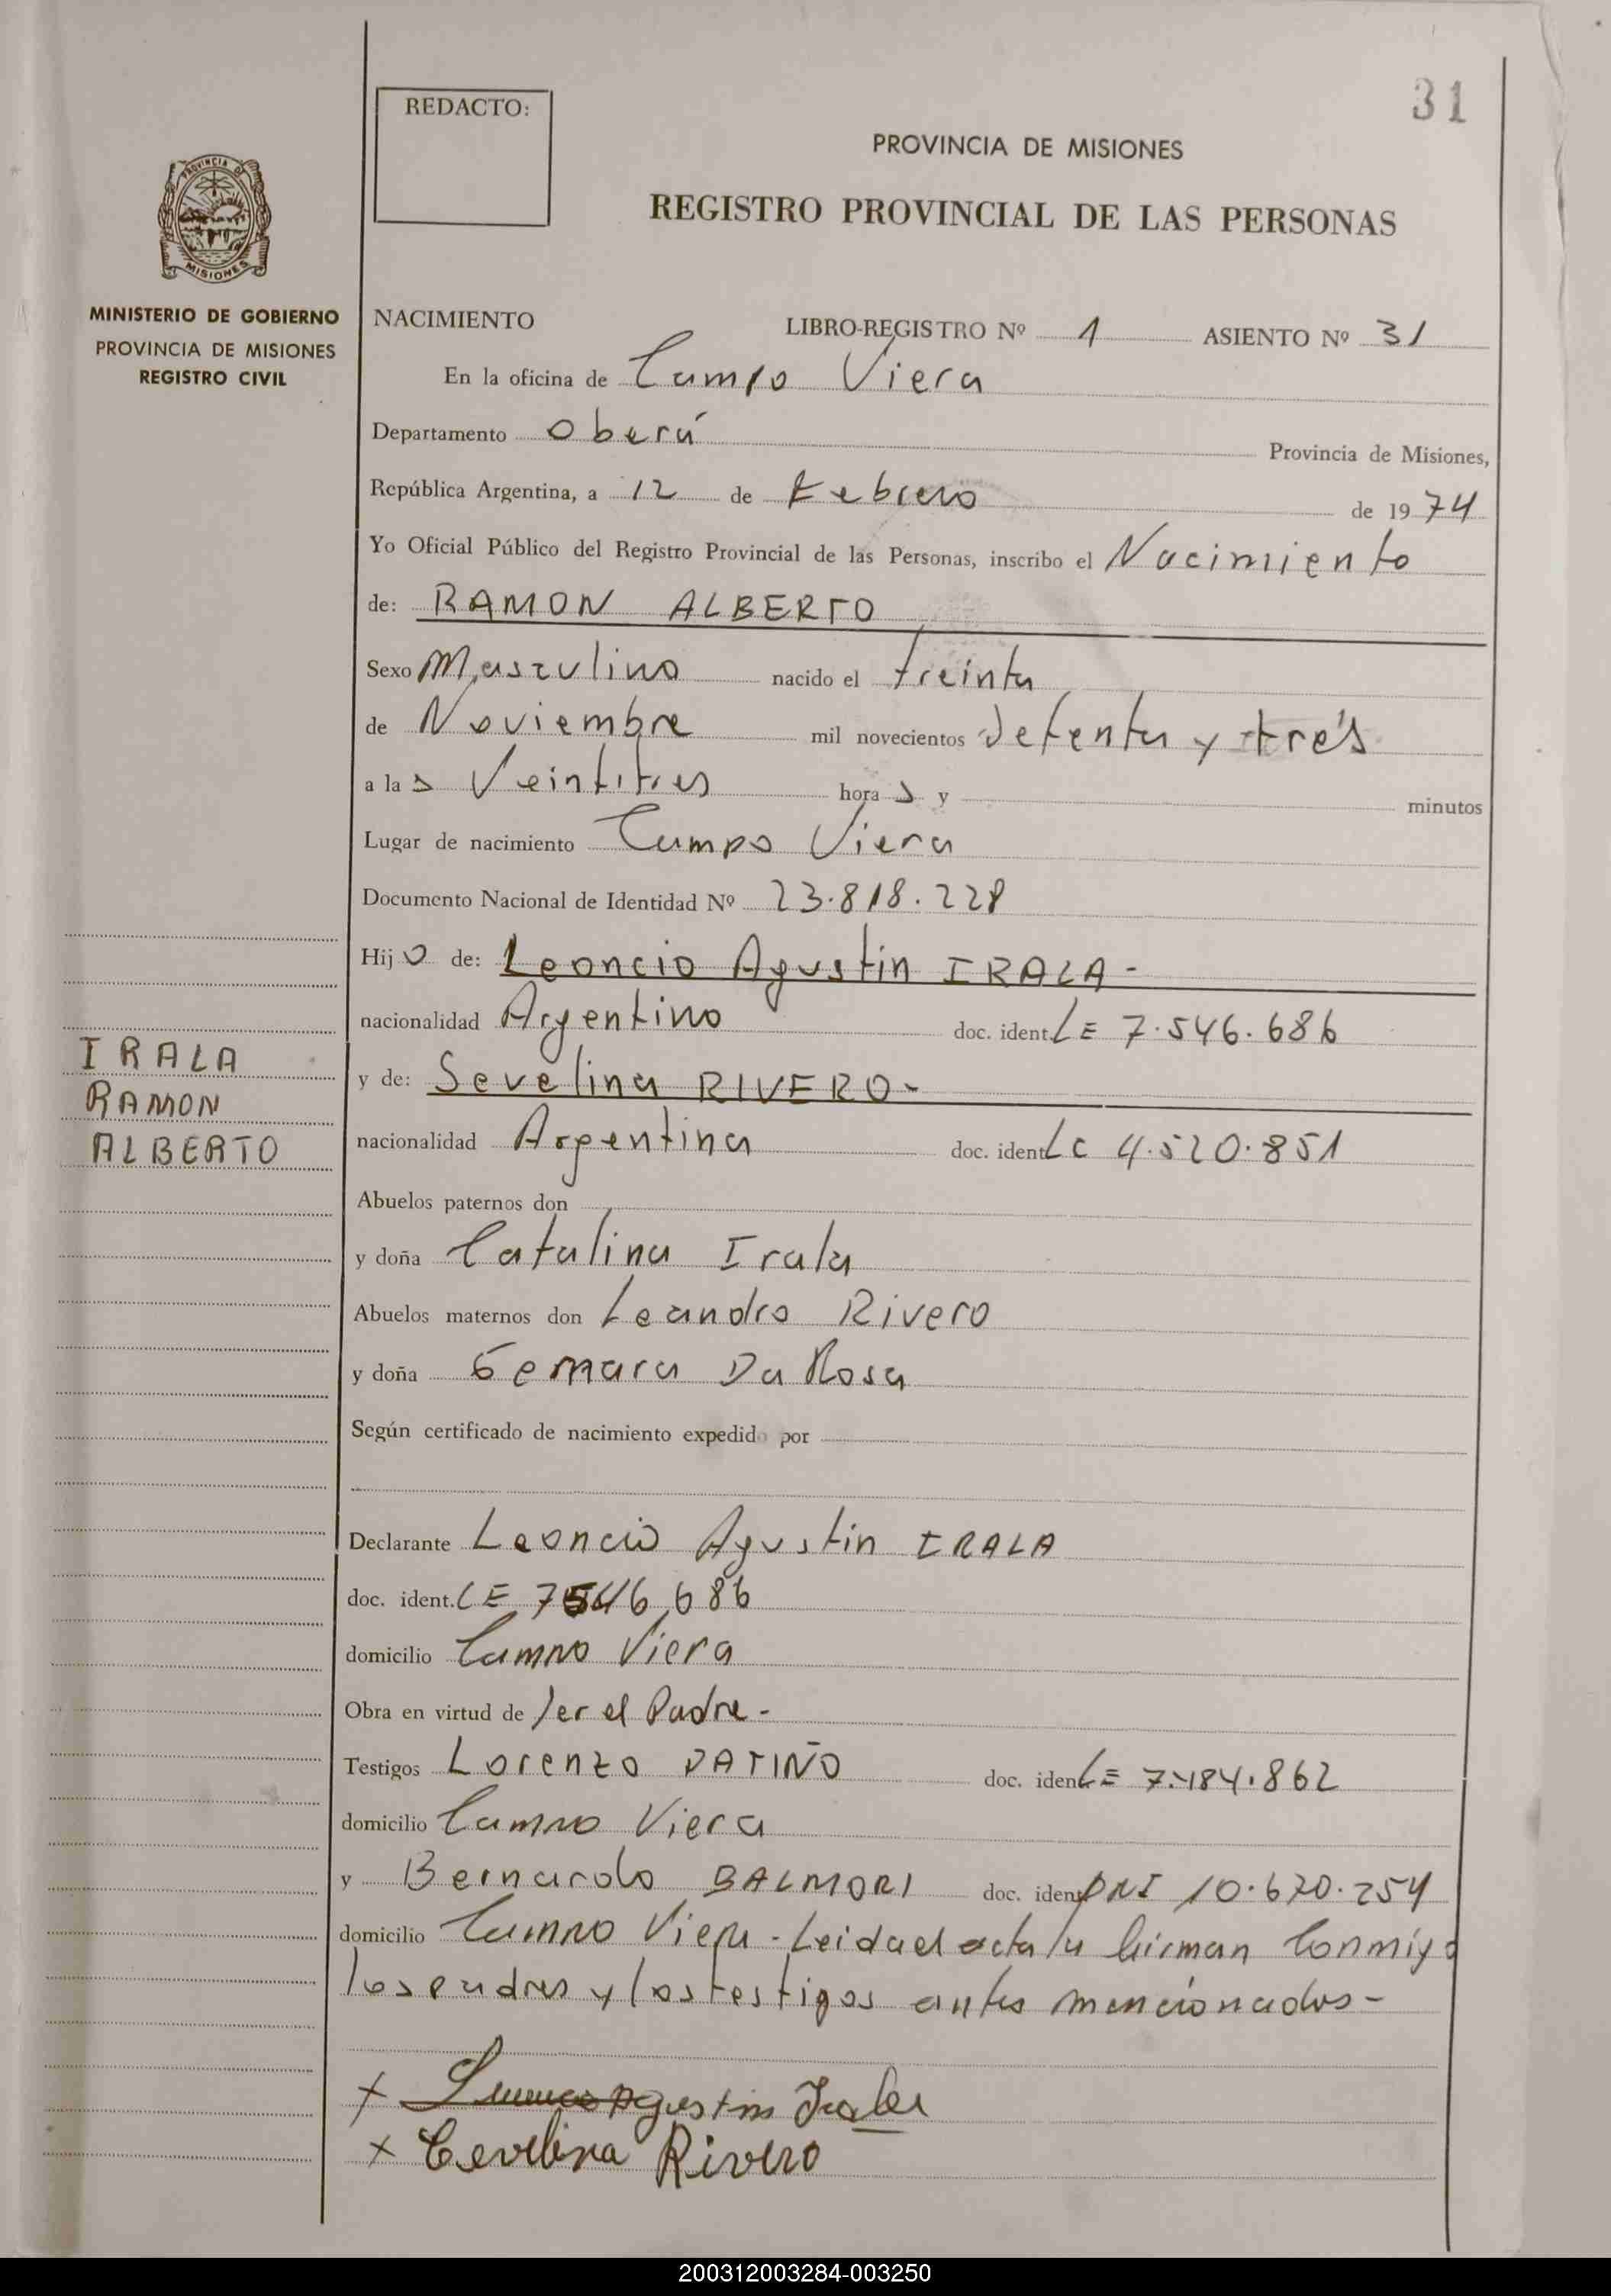 31
REDACTO:
PROVINCIA DE MISIONES
REGISTRO PROVINCIAL DE LAS PERSONAS
PROVINCIA DE
MISIONES
MINISTERIO DE GOBIERNO
PROVINCIA DE MISIONES
REGISTRO CIVIL
NACIMIENTO LIBRO-REGISTRO Nº 1 ASIENTO Nº 31
En la oficina de Campo Viera
Departamento Oberá Provincia de Misiones,
República Argentina, a 12 de Febrero de 1974
Yo Oficial Público del Registro Provincial de las Personas, inscribo el Nacimiento
de: RAMON ALBERTO
Sexo Masculino nacido el treinta
de Noviembre mil novecientos setenta y trés
a las Veintitres horas y minutos
Lugar de nacimiento Campo Viera
Documento Nacional de Identidad Nº 23.818.228
Hijo de: Leoncio Agustin IRALA -
nacionalidad Argentino doc. ident. LE 7.546.686
IRALA
RAMON
ALBERTO
y de: Sevelina RIVERO -
nacionalidad Argentina doc. ident. LC 4.520.851
Abuelos paternos don
y doña Catalina Irala
Abuelos maternos don Leandro Rivero
y doña Gemara Da Rosa
Según certificado de nacimiento expedido por
Declarante Leoncio Agustin IRALA
doc. ident. LE 7546686
domicilio Campo Viera
Obra en virtud de ser el Padre -
Testigos Lorenzo PATIÑO doc. ident. LE 7.484.862
domicilio Campo Viera
y Bernardo BALMORI doc. ident. DNI 10.670.254
domicilio Campo Viera - Leida el acta la firman conmigo
los padres y los testigos antes mencionados -
x Agustin Irala
x Cevelina Rivero
200312003284-003250